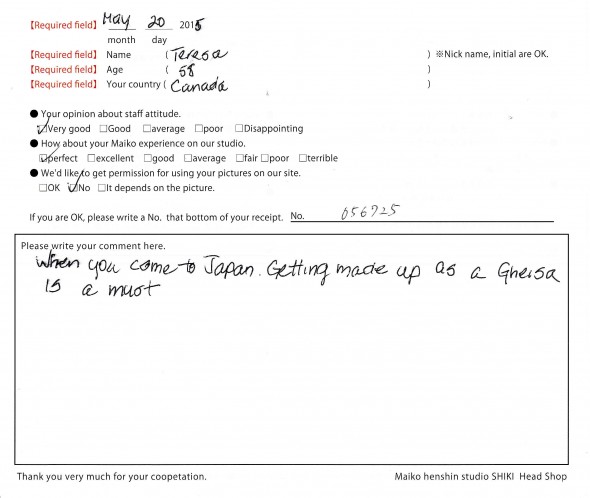 【Required field】 May 20 2015
month day
【Required field】 Name ( Teresa ) ※Nick name, initial are OK.
【Required field】 Age ( 58 )
【Required field】 Your country ( Canada )
● Your opinion about staff attitude.
☑Very good □Good □average □poor □Disappointing
● How about your Maiko experience on our studio.
☑perfect □excellent □good □average □fair □poor □terrible
● We'd like to get permission for using your pictures on our site.
□OK ☑No □It depends on the picture.
If you are OK, please write a No. that bottom of your receipt. No. 056925
Please write your comment here.
When you come to Japan. Getting made up as a Gheisa
is a must
Thank you very much for your coopetation. Maiko henshin studio SHIKI Head Shop